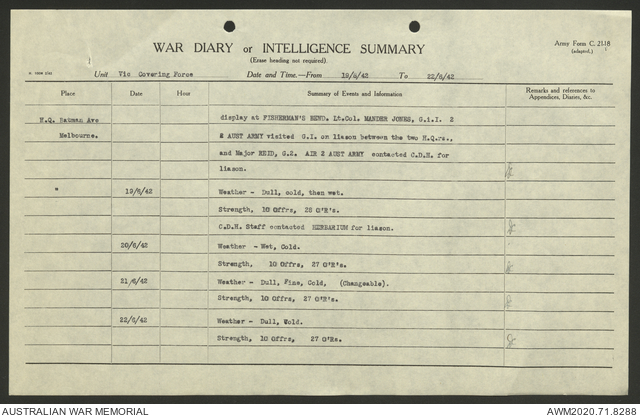 WAR DIARY or INTELLIGENCE SUMMARY
Army Form C. 2118
(adapted.)
(Erase heading not required).
Unit Vic Covering Force Date and Time.—From 19/6/42 To 22/6/42
Place Date Hour Summary of Events and Information Remarks and references to Appendices, Diaries, &c.
H.Q. Batman Ave display at FISHERMAN'S BEND. Lt.Col. MANDER JONES, G.i.I. 2
Melbourne. & AUST ARMY visited G.I. on liason between the two H.Q.rs.,
and Major REID, G.2. AIR 2 AUST ARMY contacted C.D.H. for
liason.
" 19/6/42 Weather - Dull, cold, then wet.
Strength, 10 Offrs, 28 O'R's.
C.D.H. Staff contacted HERBARIUM for liason.
20/6/42 Weather - Wet, Cold.
Strength, 10 Offrs, 27 O'R's.
21/6/42 Weather - Dull, Fine, Cold, (Changeable).
Strength, 10 Offrs, 27 O'R's.
22/6/42 Weather - Dull, Wold.
Strength, 10 Offrs, 27 O'Rs.
AUSTRALIAN WAR MEMORIAL AWM2020.71.8288